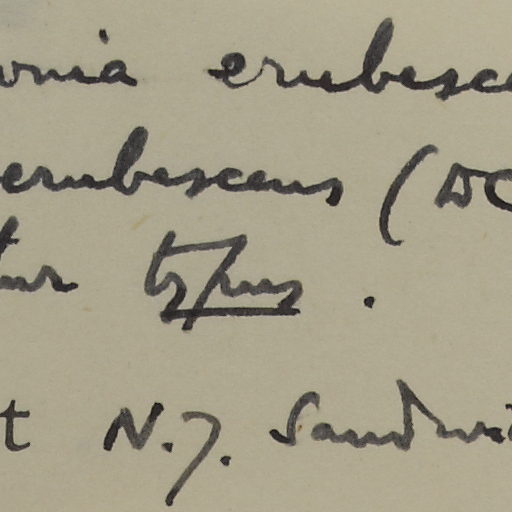 onia erubesce
erubescens (DC
tur typus .
t N.J. Sandwi